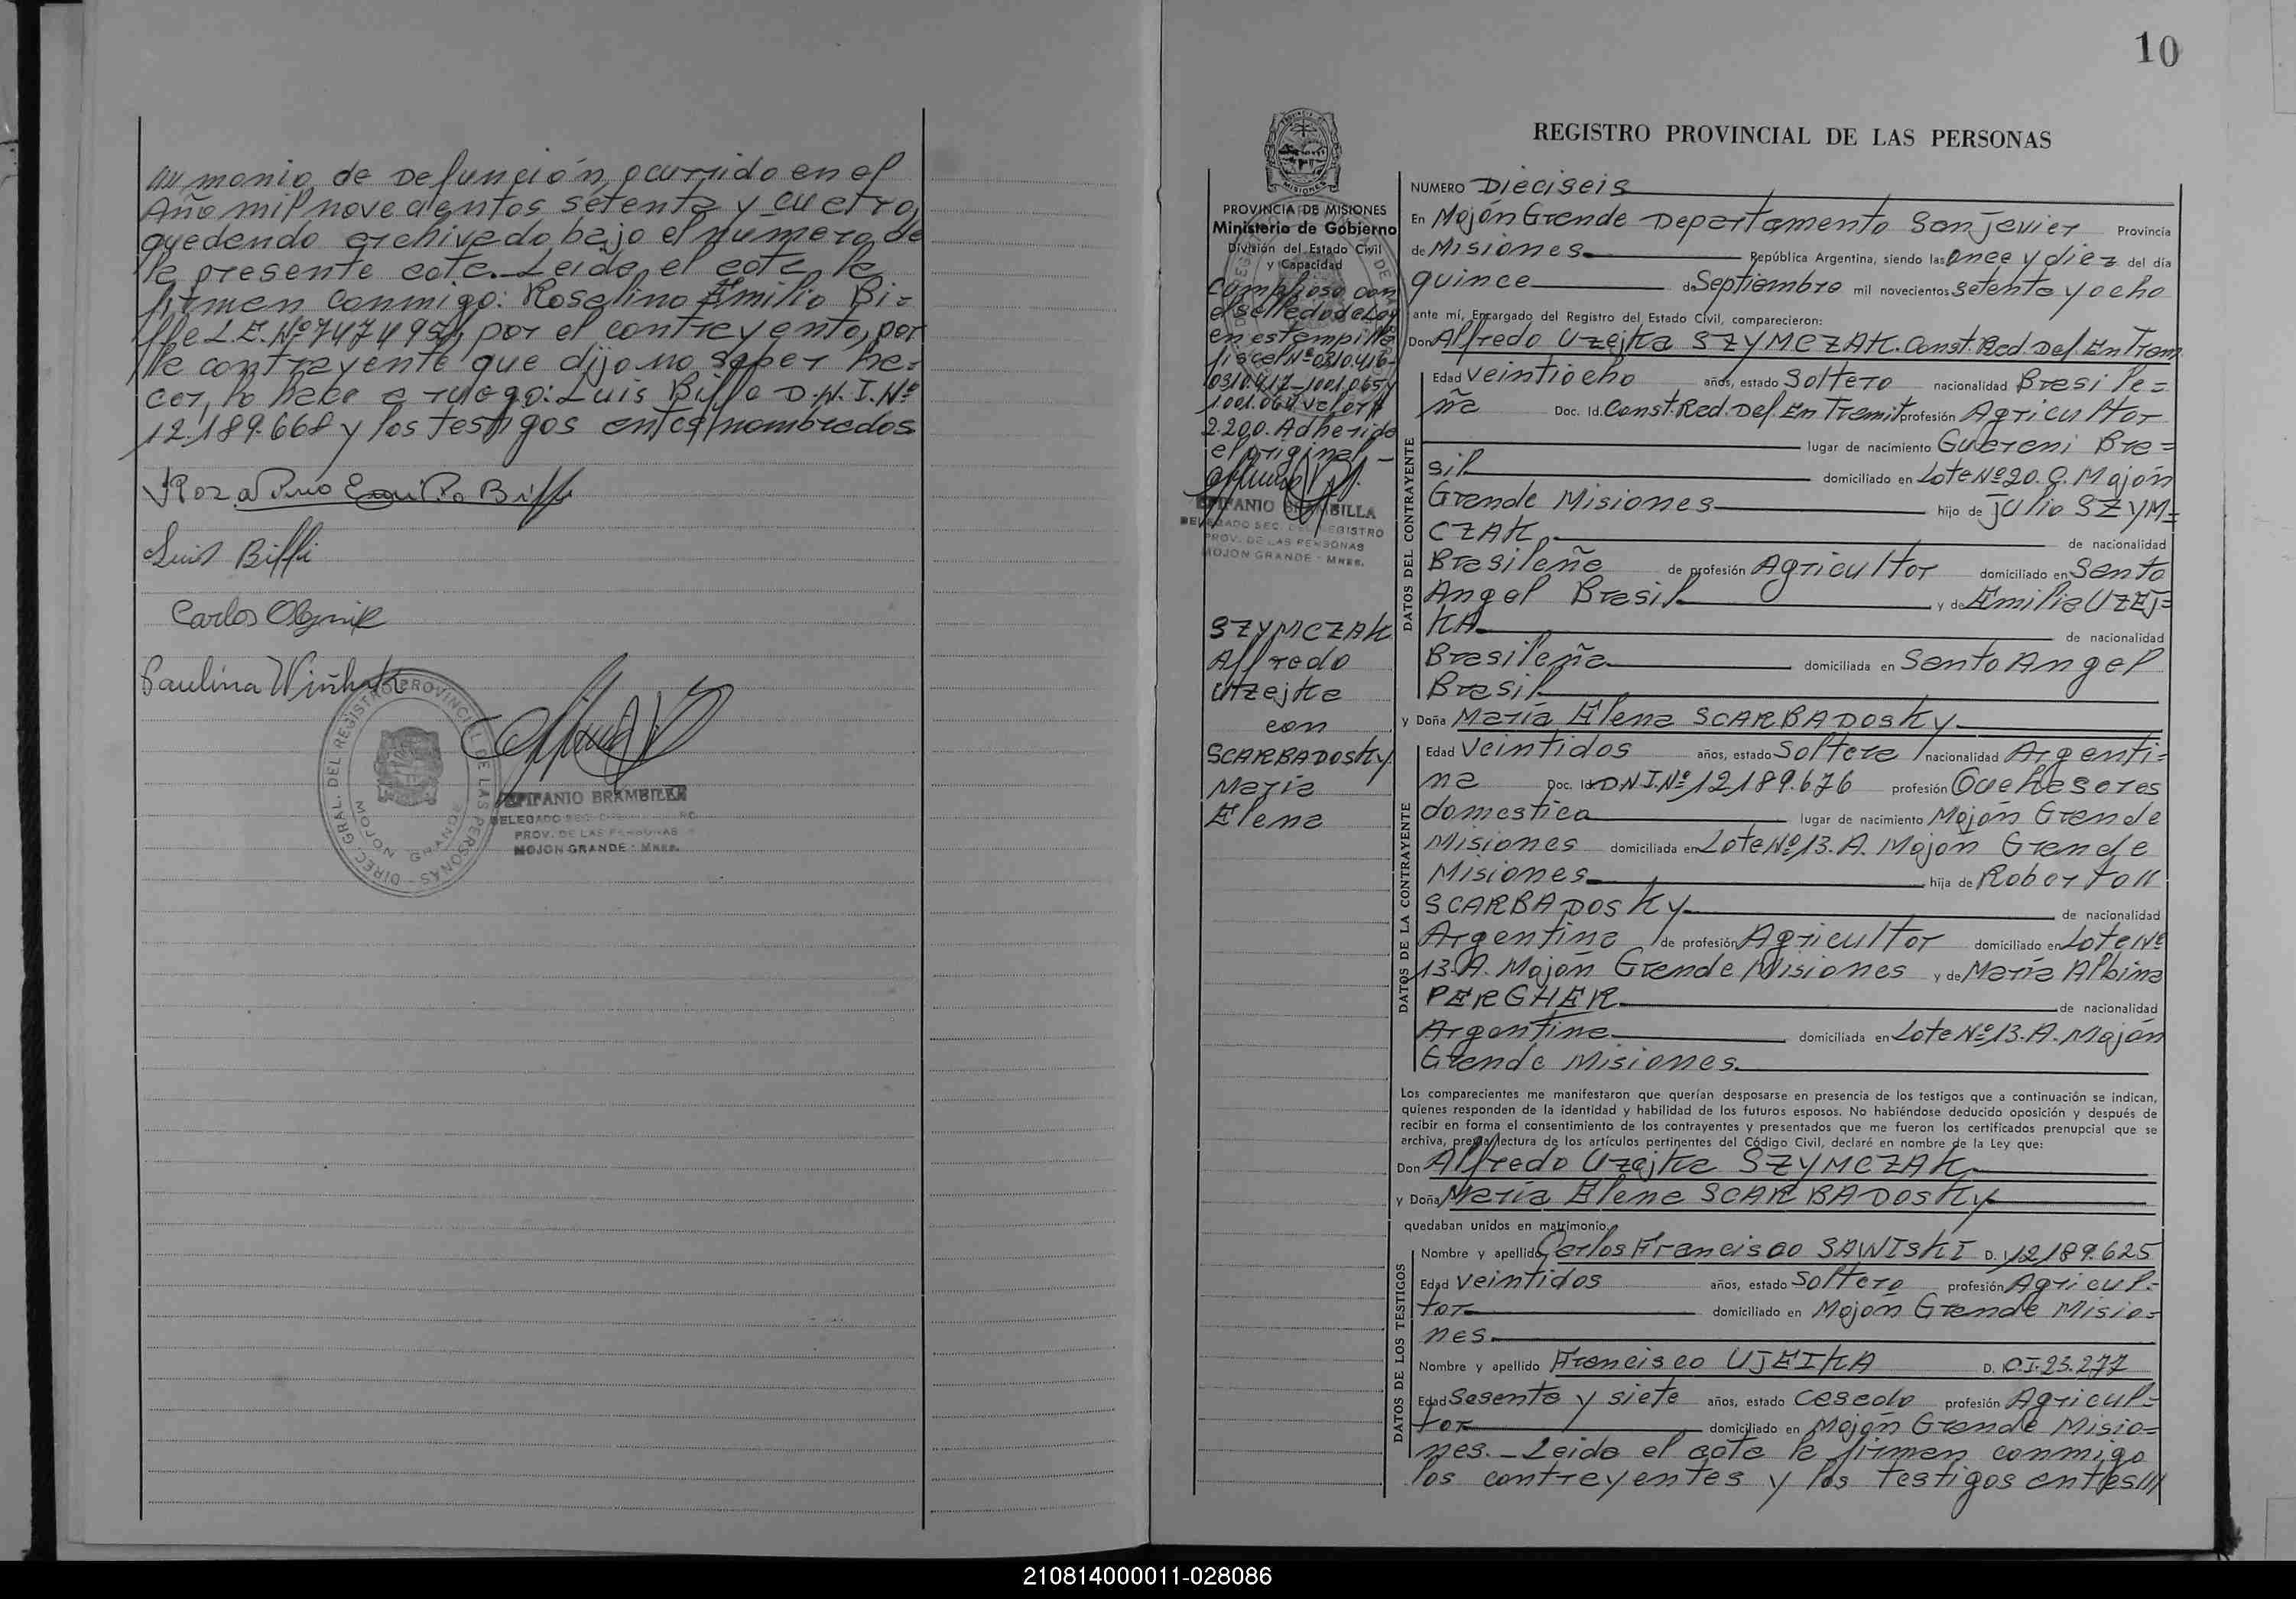 ///monio de Defunción, ocurrido en el
Año mil novecientos setenta y cuatro,
quedando archivado bajo el numero de
la presente acta.- Leida el acta la
firman conmigo: Rosalino Emilio Bi=
por el contrayente, por
la contrayente que dijo no saber ha=
cer, lo hace a ruego: Luis Biffe D.N.I.Nº
12.189.668 y los testigos antes nombrados
Luis Biffi
Carlos
Paulina
DIREC. GRAL. DEL REGISTRO PROVINCIAL DE LAS PERSONAS
MOJON GRANDE
EPIFANIO BRAMBILLA
DELEGADO SEC.
PROV. DE LAS PERSONAS
MOJON GRANDE - MNES.
10
REGISTRO PROVINCIAL DE LAS PERSONAS
MISIONES
PROVINCIA DE MISIONES
Ministerio de Gobierno
División del Estado Civil
y Capacidad
Cumplioso con
el sellado de Ley
en estampilla
fiscal Nº 0310.416-
0310.417-1001.065 y
1.001.064 valor $
2.200. Adherido
el original.-
EPIFANIO BRAMBILLA
DELEGADO SEC. DEL REGISTRO
PROV. DE LAS PERSONAS
MOJON GRANDE - MNES.
SZYMCZAK
Alfredo
Uzejka
con
SCARBADOSKY
María
Elena
NUMERO Dieciseis
En Mojón Grande Departamento San Javier Provincia
de Misiones República Argentina, siendo las once y diez del día
quince de Septiembre mil novecientos setenta y ocho
ante mí, Encargado del Registro del Estado Civil, comparecieron:
Don Alfredo Uzejka SZYMCZAK. Const. Red. Def. En Tram
DATOS DEL CONTRAYENTE
Edad veintiocho años, estado Soltero nacionalidad Brasile=
ña Doc. Id. Const. Red. Def. En Tramit profesión Agricultor
lugar de nacimiento Guarani Bra=
sil domiciliado en Lote Nº 20. C. Mojón
Grande Misiones hijo de Julio SZYM=
CZAK. de nacionalidad
Brasileña de profesión Agricultor domiciliado en Santo
Angel Brasil y de Emilia UZEJ=
KA. de nacionalidad
Brasileña domiciliada en Santo Angel
Brasil
y Doña María Elena SCARBADOSKY
DATOS DE LA CONTRAYENTE
Edad veintidos años, estado Soltera nacionalidad Argenti=
na Doc. Id. D.N.I.Nº 12.189.676 profesión Quehaseres
domestica lugar de nacimiento Mojón Grande
Misiones domiciliada en Lote Nº 13. A. Mojon Grande
Misiones hija de Robertoll
SCARBADOSKY de nacionalidad
Argentina de profesión Agricultor domiciliado en Lote Nº
13. A. Mojón Grande Misiones y de María Albina
PERGHER de nacionalidad
Argentina domiciliada en Lote Nº 13. A. Mojón
Grande Misiones.
Los comparecientes me manifestaron que querían desposarse en presencia de los testigos que a continuación se indican,
quienes responden de la identidad y habilidad de los futuros esposos. No habiéndose deducido oposición y después de
recibir en forma el consentimiento de los contrayentes y presentados que me fueron los certificados prenupcial que se
archiva, previa lectura de los artículos pertinentes del Código Civil, declaré en nombre de la Ley que:
Don Alfredo Uzejka SZYMCZAK
y Doña María Elena SCARBADOSKY
quedaban unidos en matrimonio.
DATOS DE LOS TESTIGOS
Nombre y apellido Carlos Francisco SAWISKI D. I. 12.189.625
Edad veintidos años, estado Soltero profesión Agricul=
tor domiciliado en Mojón Grande Misio=
nes.
Nombre y apellido Francisco UJEIKA D. I. C.I. 23.277
Edad Sesenta y siete años, estado casado profesión Agricul=
tor domiciliado en Mojón Grande Misio=
nes.- Leida el acta la firman conmigo
los contrayentes y los testigos antes///
210814000011-028086